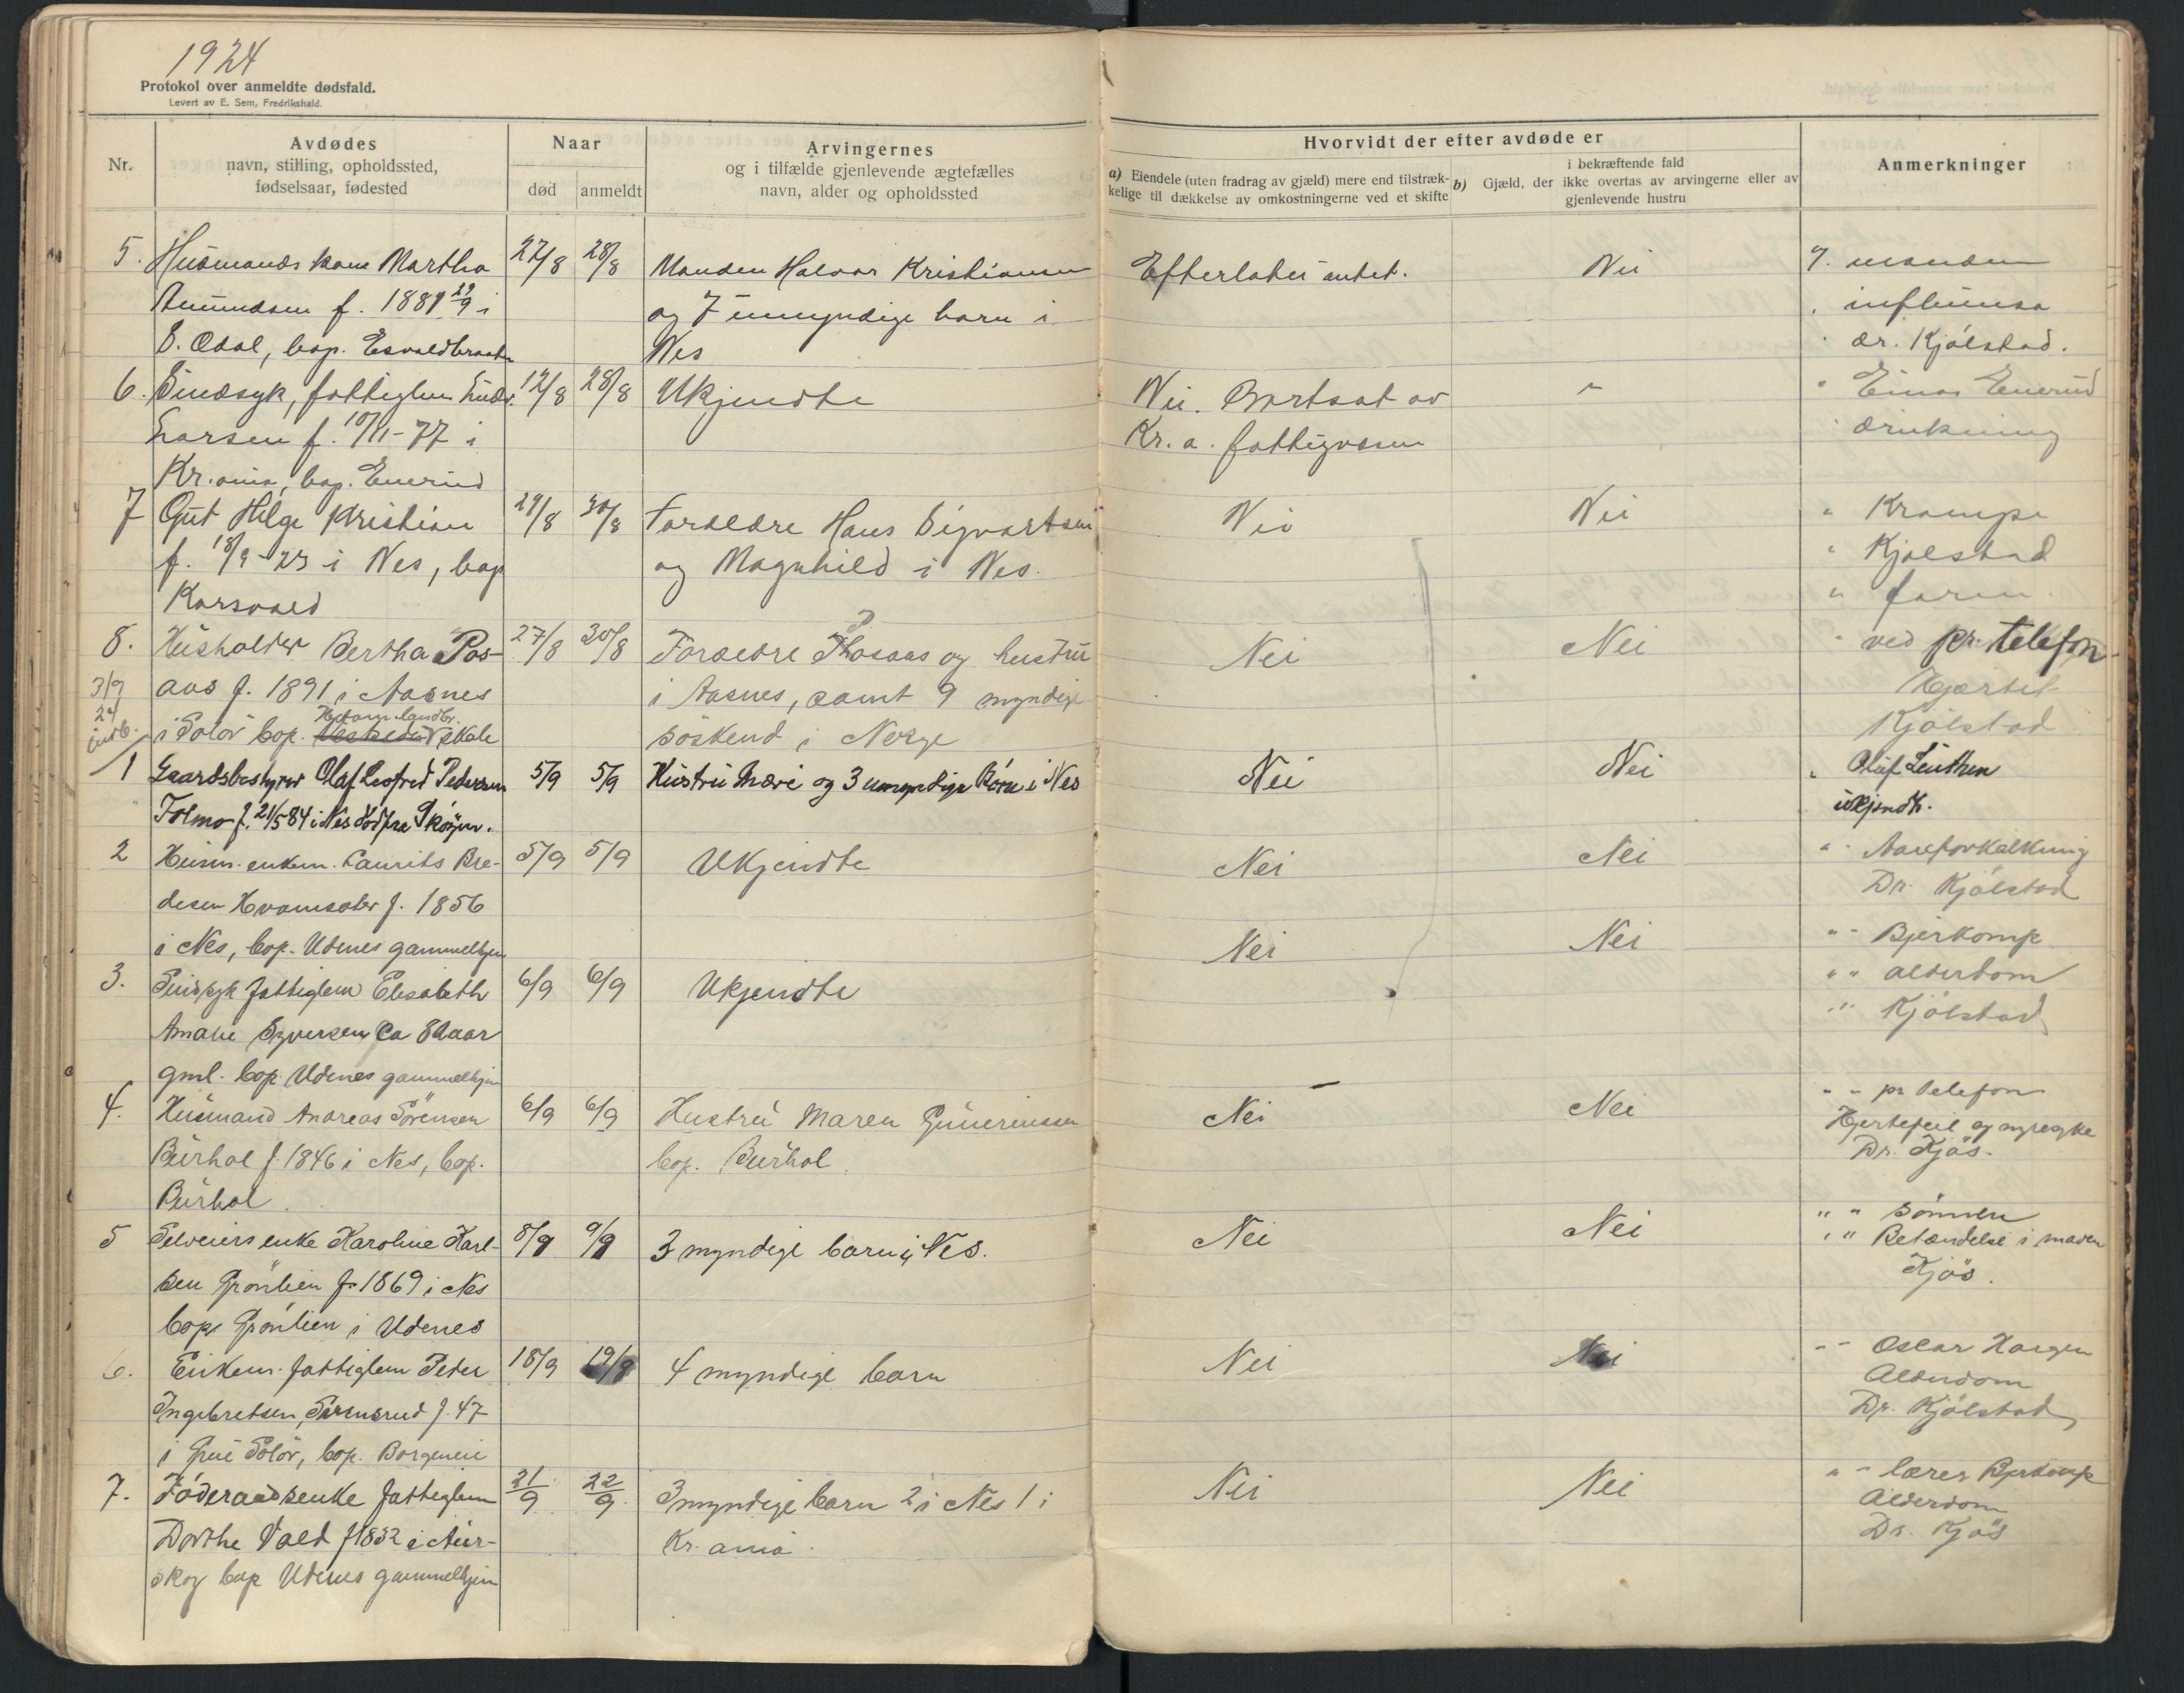 1924
Protokol over anmeldte dødsfald.
Levert av E. Sem, Fredrikshald.
Nr.
Avdødes
navn, stilling, opholdssted,
fødselsaar, fødested
Naar
død
anmeldt
Arvingernes
og i tilfælde gjenlevende ægtefælles
navn, alder og opholdssted
Hvorvidt der efter avdøde er
a) Eiendele (uten fradrag av gjæld) mere end tilstræk-
kelige til dækkelse av omkostningerne ved et skifte
i bekræftende fald
b) Gjæld, der ikke overtas av arvingerne eller av
gjenlevende hustru
Anmerkninger
5. Husmands kone Martha 27/8 28/8 Manden Halvor Kristiansen Efterlater intet. Nei manden
Amundsen f. 1881 29/9 i og 7 umyndige barn i influensa
S. Odal, bop. Esvaldbraaten Nes dr. Kjölstad.
6. Sindsyk, fattiglem 12/8 28/8 Ukjendte Nei. Bortsat av " Einar Enerud
Larsen f. 10/11-77 i Kr.a. fattigvæsen drukning
Kr.ania, bop. Enerud
7 Gut Helge Kristian 29/8 30/8 Foreldre Hans Sigvartsen Nei Nei " Krampe
f. 18/9-23 i Nes, bop og Magnhild i Nes. " Kjølstad
Karsvald " faren.
8. Husholder Bertha Pos- 27/8 30/8 Foreldre Posaas og hustru Nei Nei " ved pr. telefon
3/9 aas f. 1891 i Aasnes i Aasnes, samt 9 myndige Hjertef
24 i Solör bop. Skole söskend i Norge Kjölstad
indb.
1 Gaardsbestyrer Olaf Leofred Pedersen 5/9 5/9 Hustru Mari og 3 umyndige Börn i Nes Nei Nei " Oluf Leuthen
Folmo f. 21/5 84 i Nes död fra Skögen. ukjendt.
2 Husm. enkem. Laurits Bre- 5/9 5/9 Ukjendte Nei Nei " Aareforkalkning
desen Kvamsæter f. 1856 Dr. Kjölstad
i Nes, bop. Udenes gammelhjem Nei Nei " Bjerkomp
3. Sindsyk fattiglem Elisabeth 6/9 6/9 Ukjendte " " alderdom
Amalie Syversen Ca 82 aar " Kjölstad
gml. bop. Udenes gammelhjem
4. Husmand Andreas Sörensen 6/9 6/9 Hustru Maren Guneriussen Nei Nei " " pr telefon
Burhol f. 1846 i Nes, bop. bop. Burhol. Hjertefeil og nyresyke
Burhol. Dr. Kjös.
5 Selveiers enke Karoline Karl- 8/9 9/9 3 myndige barn i Nes. Nei Nei " " sönnen
sen Grönlien f. 1869 i Nes " " Betændelse i maven
bop. Grönlien i Udenes Kjös.
6. Enkem. fattiglem Peder 18/9 19/9 4 myndige barn Nei Nei " - Oscar Haagen
Ingebretsen, f. 47 Alderdom
i Grue Solör, bop. Borgenvie Dr. Kjölstad
7. Föderaadsenke fattiglem 21/9 22/9 3 myndige barn 2 i Nes 1 i Nei Nei " - lærer Bjerkomp
Dorthe Vald f 1832 i Aur- Kr. ania. Alderdom
skog bop Udenes gammelhjem Dr. Kjös